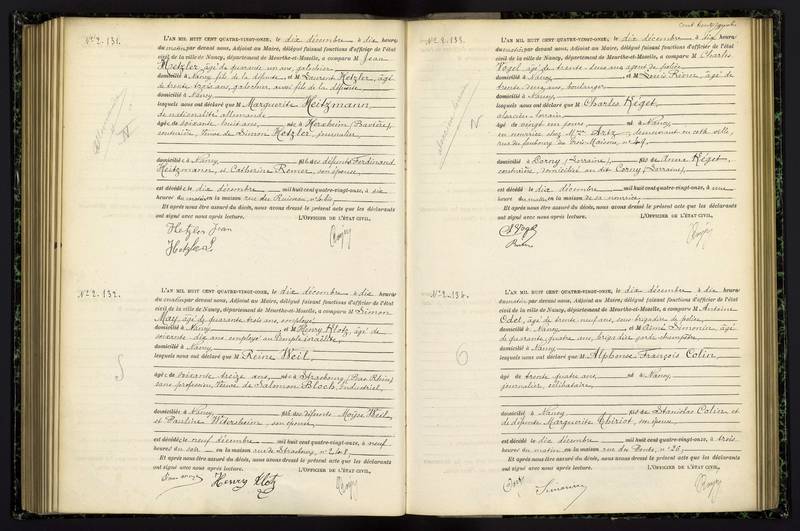 N° 2.131.
L'AN MIL HUIT CENT QUATRE-VINGT-ONZE, le dix décembre à dix heures
du matin par devant nous, Adjoint au Maire, délégué faisant fonctions d'officier de l'état
civil de la ville de Nancy, département de Meurthe-et-Moselle, a comparu M Jean
Hetzler, âgé de quarante un ans, galochier
domicilié à Nancy fils de la défunte et M Laurent Hetzler, âgé
de trente trois ans, galochier, aussi fils de la défunte
domicilié à Nancy
lesquels nous ont déclaré que Marguerite Heitzmann
de nationalité allemande
âgée de soixante huit ans, née à Herxheim (Bavière)
couturière, Veuve de Simon Hetzler, journalier
domiciliée à Nancy fille des défunts Ferdinand
Heitzmann, et Catherine Romer, son épouse
est décédée le dix décembre mil huit cent quatre-vingt-onze, à six
heures du matin en la maison rue du Ruisseau
Et après nous être assuré du décès, nous avons dressé le présent acte que les déclarants
ont signé avec nous après lecture. L'OFFICIER DE L'ÉTAT CIVIL,
Hetzler Jean
Hetzler L
N° 2.132.
L'AN MIL HUIT CENT QUATRE-VINGT-ONZE, le dix décembre à dix heures
du matin par devant nous, Adjoint au Maire, délégué faisant fonctions d'officier de l'état
civil de la ville de Nancy, département de Meurthe-et-Moselle, a comparu M Simon
May, âgé de quarante trois ans, employé
domicilié à Nancy et M Henry Klotz, âgé de
soixante dix ans, employé au Temple israélite,
domicilié à Nancy
lesquels nous ont déclaré que M Reine Weil,
âgée de soixante treize ans, née à Strasbourg (Bas-Rhin)
sans profession, Veuve de Salomon Bloch, industriel,
domiciliée à Nancy fille des défunts Moïse Weil
et Pauline Witersheim, son épouse
est décédée le neuf décembre mil huit cent quatre-vingt-onze, à neuf
heures du soir en la maison rue de Strasbourg, n° 248,
Et après nous être assuré du décès, nous avons dressé le présent acte que les déclarants
ont signé avec nous après lecture. L'OFFICIER DE L'ÉTAT CIVIL,
Henry Klotz
N° 2.133.
L'AN MIL HUIT CENT QUATRE-VINGT-ONZE, le dix décembre à dix heures
du matin par devant nous, Adjoint au Maire, délégué faisant fonctions d'officier de l'état
civil de la ville de Nancy, département de Meurthe-et-Moselle, a comparu M Charles
Vogel, âgé de trente deux ans, agent de police
domicilié à Nancy et M Louis Rivier, âgé de
trente deux ans, boulanger
domicilié à Nancy,
lesquels nous ont déclaré que M Charles Réget,
alsacien-lorrain
âgé de vingt un jours, né à Nancy
en nourrice chez Mme Artz, demeurant en cette ville,
rue du faubourg des Trois Maisons, n° 49,
domicilié à Corny (Lorraine), fils de Anna Réget,
couturière, domiciliée au dit Corny (Lorraine),
est décédé le dix décembre mil huit cent quatre-vingt-onze, à une
heure du matin en la maison de sa nourrice,
Et après nous être assuré du décès, nous avons dressé le présent acte que les déclarants
ont signé avec nous après lecture. L'OFFICIER DE L'ÉTAT CIVIL,
N° 2.134.
L'AN MIL HUIT CENT QUATRE-VINGT-ONZE, le dix décembre à dix heures
du matin par devant nous, Adjoint au Maire, délégué faisant fonctions d'officier de l'état
civil de la ville de Nancy, département de Meurthe-et-Moselle, a comparu M Antoine
Odel, âgé de trente neuf ans, sous brigadier de police
domicilié à Nancy et M Aimé Simonin, âgé
de quarante quatre ans, brigadier garde champêtre
domicilié à Nancy
lesquels nous ont déclaré que M Alphonse François Colin,
âgé de trente quatre ans, né à Nancy,
journalier, célibataire,
domicilié à Nancy fils de Stanislas Colin et
de défunte Marguerite Thiriot, son épouse,
est décédé le dix décembre mil huit cent quatre-vingt-onze, à trois
heures du matin en la maison rue des Ponts, n° 26,
Et après nous être assuré du décès, nous avons dressé le présent acte que les déclarants
ont signé avec nous après lecture. L'OFFICIER DE L'ÉTAT CIVIL,
Simonin